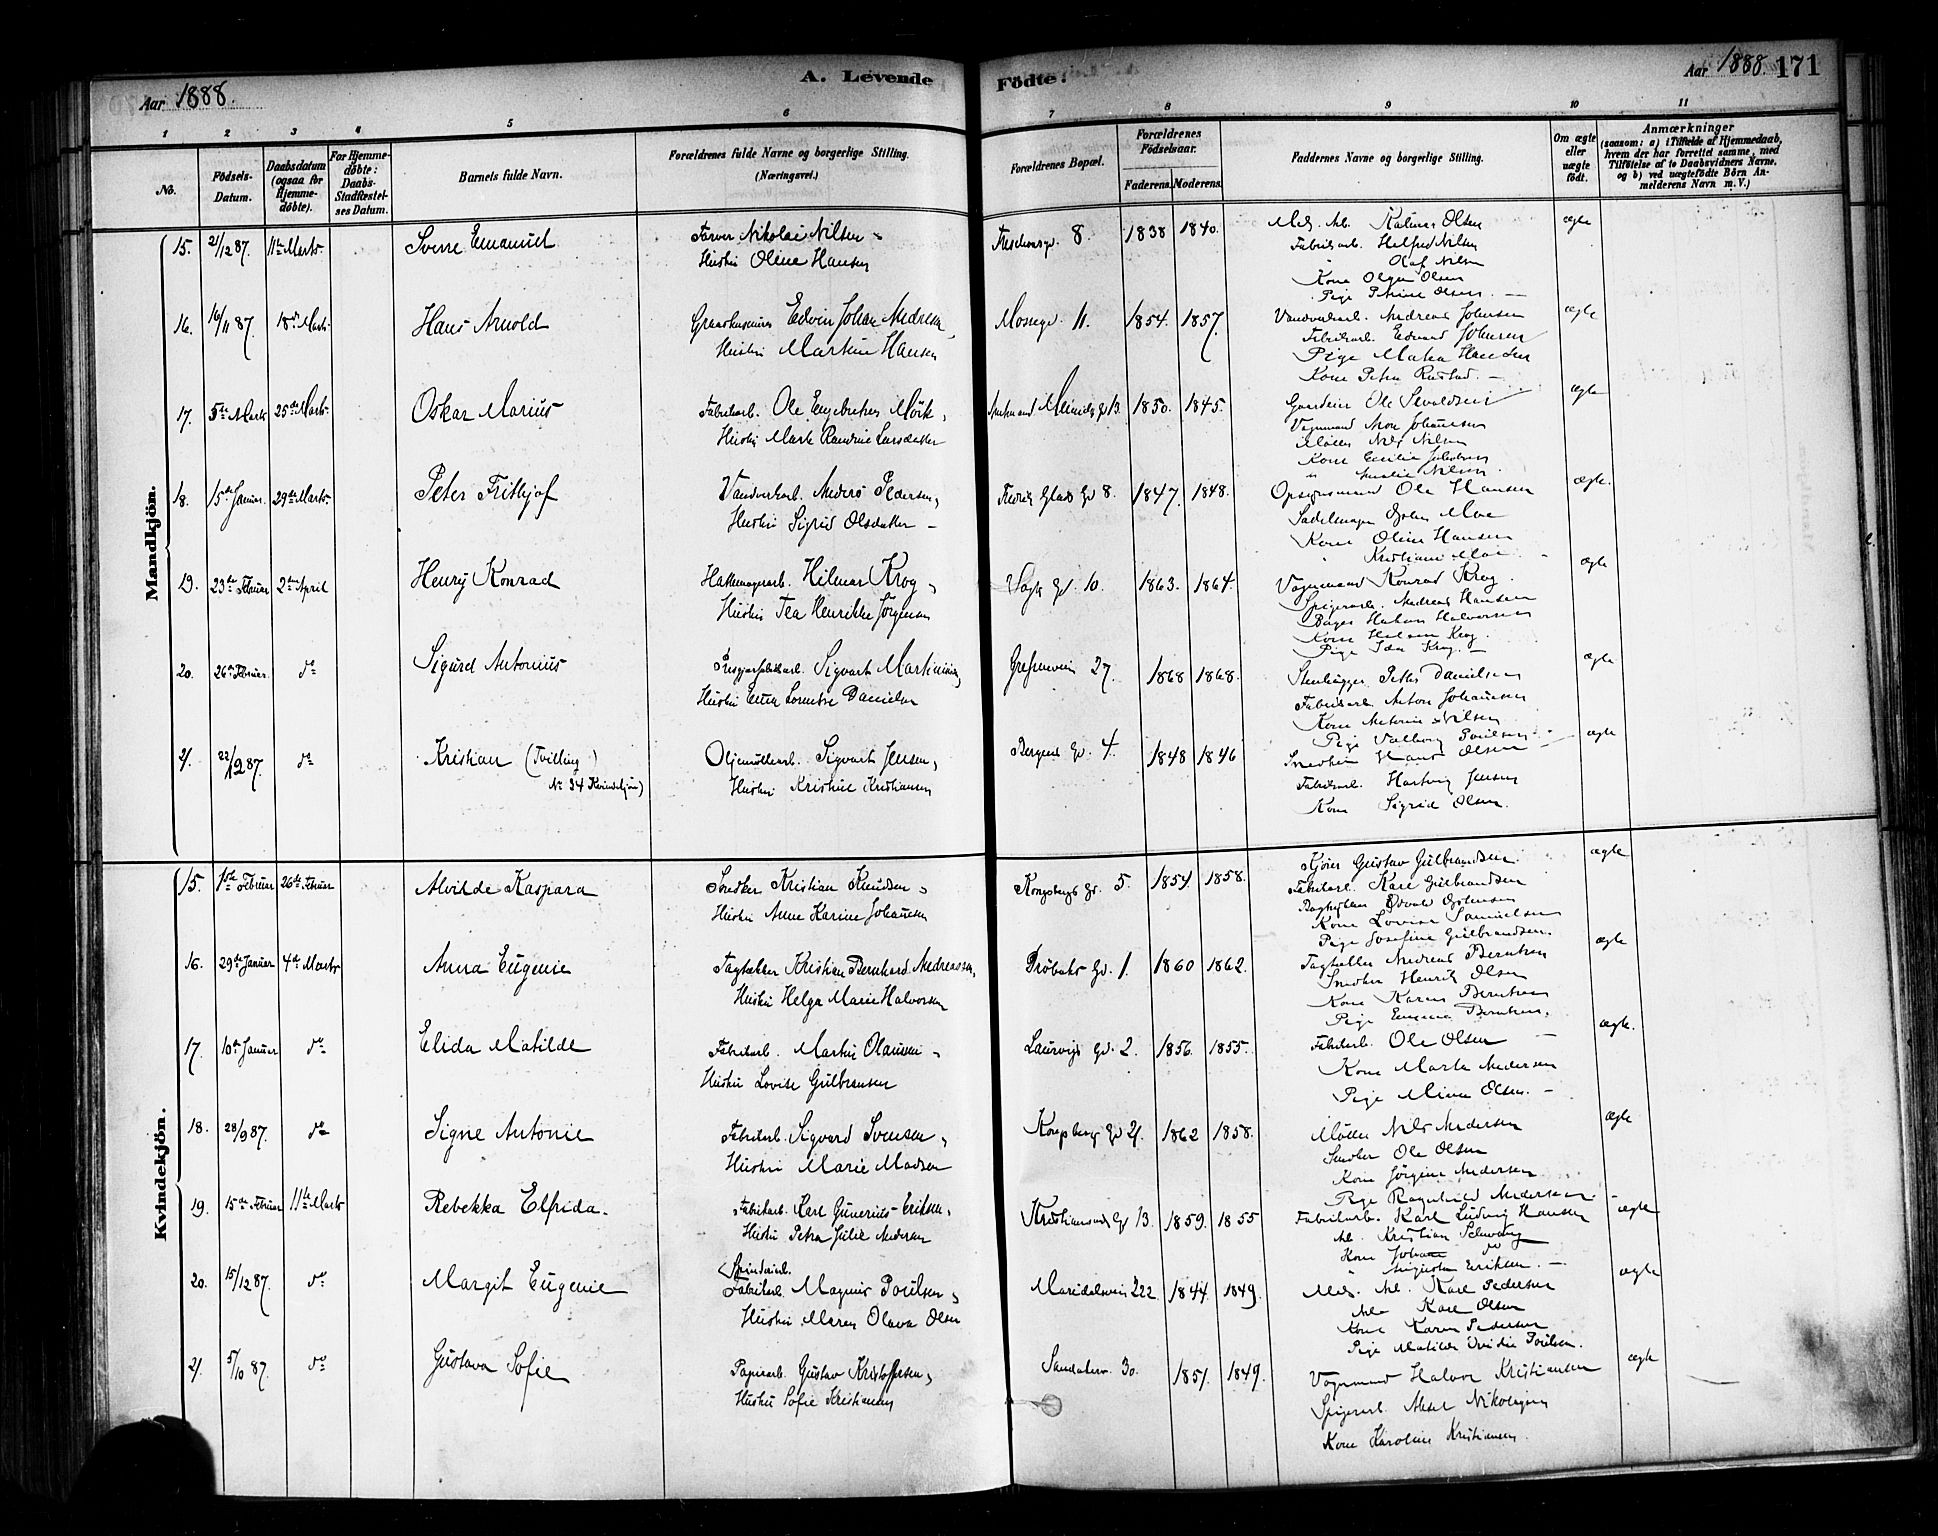 Aar 1888.
A. Levende Födte.
Aar 1888. 171
1 2 3 4 5 6 7 8 9 10 11
No.
Födsels-Datum.
Daabsdatum (ogsaa for Hjemmedöbte).
For Hjemmedöbte: Daabs-Stadfæstelses Datum.
Barnets fulde Navn.
Forældrenes fulde Navne og borgerlige Stilling. (Næringsvei.)
Forældrenes Bopæl.
Forældrenes Födselsaar.
Faderens. Moderens.
Faddernes Navne og borgerlige Stilling.
Om ægte eller uægte födt.
Anmærkninger
(saasom: a) i Tilfælde af Hjemmedaab, hvem der har forrettet samme, med Tilföielse af to Daabsvidners Navne, og b) ved uægtefödte Börn Anmelderens Navn m. V.)
Mandkjön.
15. 21/12 87. 11te Marts. Sverre Emanuel
Farver Nikolai Nilsen
Hustru Oline Hansen
8. 1838 1840.
Olsen
Fabriksarb. Nilsen
Olaf Nilsen
Kone Olsen
Pige Petrine Olsen.
ægte
16. 16/11 87. 18de Marts Hans Arnold
Edvin Johan Andresen
Hustru Martine Hansen
Mossegd. 11. 1854. 1857.
Andreas Johnsen
Fabrikarb. Edvard Johnsen
Pige Hansen
Kone Petra Rustad.
ægte
17. 5te Marts 25de Marts. Oskar Marius
Fabrikarb. Ole Engebretsen Mörk,
Hustru Marte Larsdatter
13. 1850. 1845.
Ole
Vognmand Johansen
Möller Nils Nilsen
Kone Emilie
Nilsen
ægte
18. 15de Januar. 29de Marts. Peter Frithjof
Anders Pedersen,
Hustru Sigrid Olsdatter
Fredrik Glads Gd 8. 1847. 1848.
Opsynsmand Ole Hansen
Sadelmager Moe
Kone Oline Hansen
Kristiane Moe
ægte.
19. 23de Februar 2den April Henry Konrad
Hilmar Krog,
Hustru Tea Henrikke Jörgensen
10. 1863. 1864.
Vognmand Konrad Krog.
Spigerarb. Andreas Hansen
Halvorsen
Kone Krog.
Pige Ida Krog.
ægte
20. 26de Februar. do Sigurd Antonius
Sigvart Martinsen,
Hustru Danielsen
Grefsenveien 27. 1868 1868.
Stenhugger Peter Danielsen
Fabriksarb. Anton Johansen
Kone Antonie Nilsen
Pige Valborg Poulsen
ægte
21. 22/12 87. do Kristian (Tvilling)
No 34 Kvindekjön)
Oljemöllearb. Sigvart Jensen,
Hustru Kristine Kristiansen
Bergens Gd. 4. 1848 1846
Hans Olsen
Fabriksarb. Hartvig Jensen
Kone Sigrid Olsen.
ægte
Kvindekjön.
15. 1ste Februar 26de Februar Alvilde Kaspara
Snedker Kristian Knudsen
Hustru Anne Karine Johansen
Kongsbergs Gd. 5. 1854. 1858.
Gustav Gulbrandsen.
Fabrikarb. Karl Gulbrandsen
Kone Lovise Samuelsen
Pige Josefine Gulbrandsen.
ægte
16. 29de Januar 4de Marts Anna Eugenie
Tagtækker Kristian Bernhard Andreassen,
Hustru Helga Marie Halvorsen
Dröbaks Gd. 1. 1860 1862.
Tagtækker Andreas Berntsen
Snedker Henrik Olsen
Kone Karen Berntsen
Pige Emma Berntsen.
ægte
17. 10de Januar do Elida Matilde
Fabrikarb. Martin Olaussen
Hustru Lovise Gulbransen
Laurvigs Gd. 2. 1856. 1855.
Fabrikarb. Ole Olsen
Kone Marte Andersen
Pige Mina Olsen.
ægte.
18. 28/9 87. do Signe Antonie
Fabrikarb. Sigvard Svensen,
Hustru Marie Madsen
Kongsbergs Gd 21. 1862 1858.
Möller Nils Andersen
Snedker Ole Olsen
Kone Jörgine Andersen
Pige Ragnhild Andersen.
ægte
19. 15de Februar 11te Marts Rebekka Elfrida.
Fabrikarb. Karl Gunerius Eriksen,
Hustru Petra Julie Andersen
Kristiansunds Gd 13. 1859. 1855
Fabrikarb. Karl Ludvig Hansen
Arb. Kristian
Kone do
Augusta Eriksen.
ægte
20. 15/12 87. do Margit Eugenie
Spinderiarb.
Fabrikarb. Magnus Poulsen,
Hustru Maren Olava Olsen
Maridalsveien 222. 1844. 1849.
Arb. Karl Pedersen
Arb. Karl Olsen
Kone Karen Pedersen
Pige Matilde Poulsen.
ægte
21. 5/10 87. do Gustava Sofie
Papirarb. Gustav Kristoffersen,
Hustru Sofie Kristiansen
Sandakerv. 30. 1851. 1849.
Vognmand Halvor Kristiansen
Spigerarb. Aksel Nikolaysen
Kone Karoline Kristiansen.
ægte